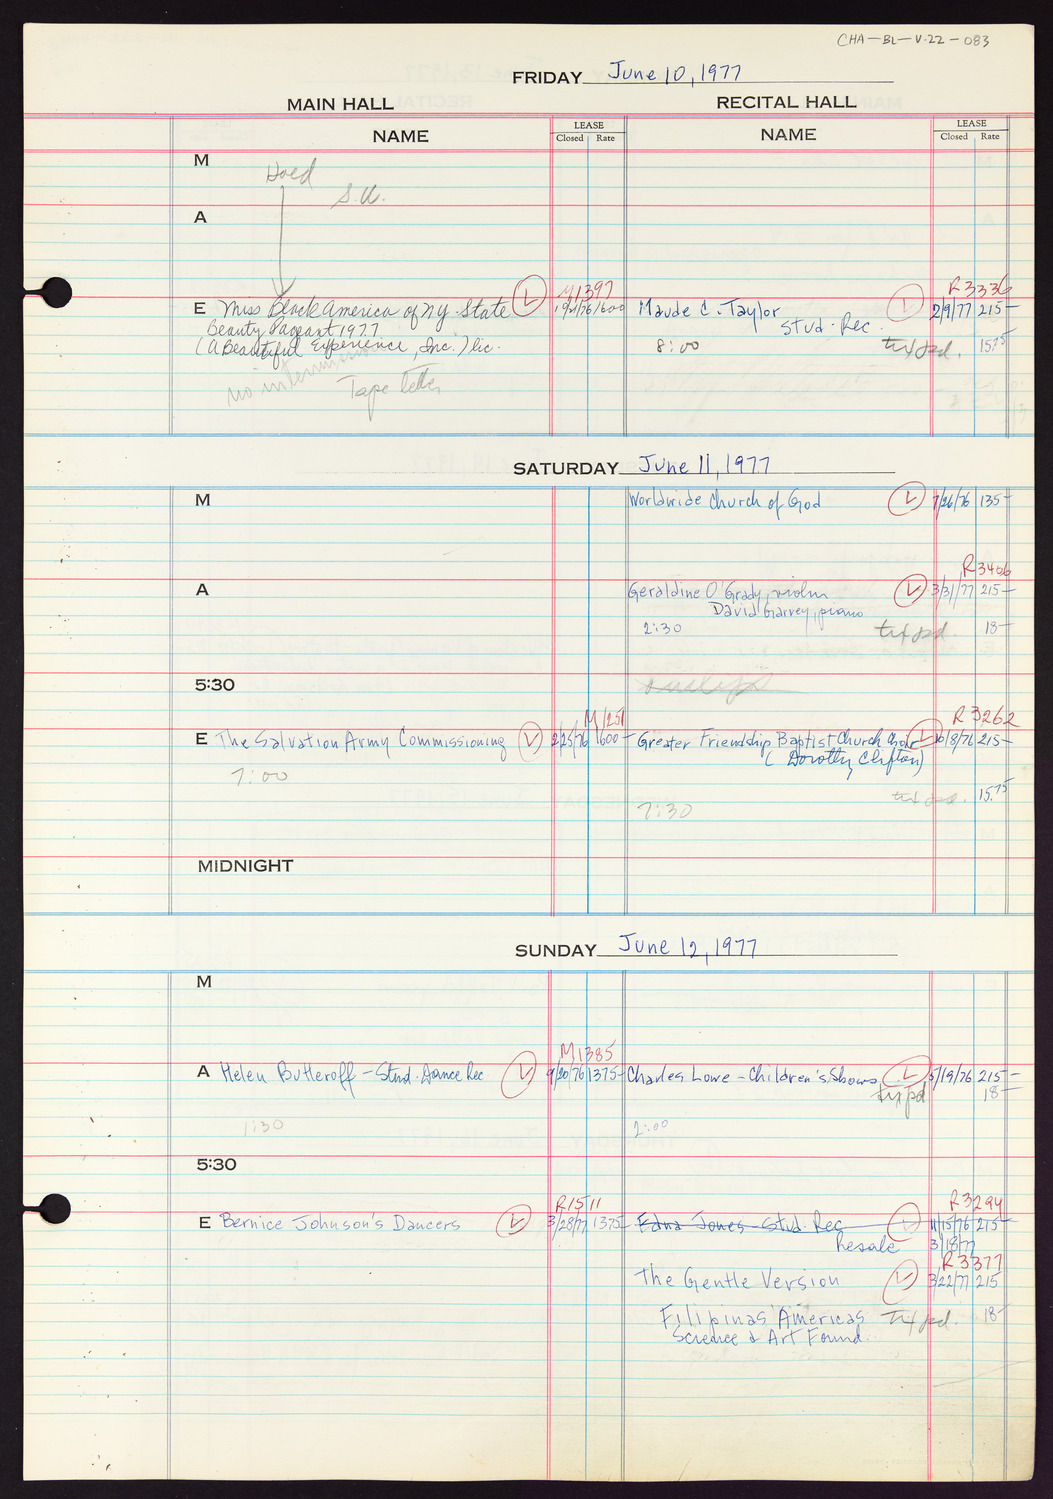 CHA-BL-V.22-083
FRIDAY June 10, 1977
MAIN HALL
RECITAL HALL
NAME
LEASE
Closed Rate
NAME
LEASE
Closed Rate
M
S.U.
A
E Miss Black America of Ny. State
Beauty Pageant 1977
(a Beautiful Experience, Inc.) lic.
no intermission
Tape letter
M1397
1600
Maude C. Taylor
Stud. Rec.
8:00
R3336
2/9/77 215-
txf pd. 15.75
SATURDAY June 11, 1977
M
Worldwide Church of God L 7/26/76 135-
A
R3406
Geraldine O'Grady, violin L 3/31/77 215-
David Garvey, piano
2:30 txf pd. 18-
5:30
M1251
E The Salvation Army Commissioning L 2/25/76 1600-
7:00
R3262
Greater Friendship Baptist Church Choir L 10/8/76 215-
(Dorothy Clifton)
txf pd. 15.75
7:30
MIDNIGHT
SUNDAY June 12, 1977
M
M1385
A Helen Butleroff - Stud. Dance Rec L 9/20/76 1375-
1:30
Charles Lowe - Children's Shows L 5/19/76 215-
txf pd 18-
2:00
5:30
R1511
E Bernice Johnson's Dancers L 3/28/77 1375-
R3294
Edna Jones - Stud. Rec L 11/15/76 215-
Resale 3/18/77
R3377
The Gentle Version L 3/22/77 215
Filipinas Americas txf pd. 18-
Science & Art Found.